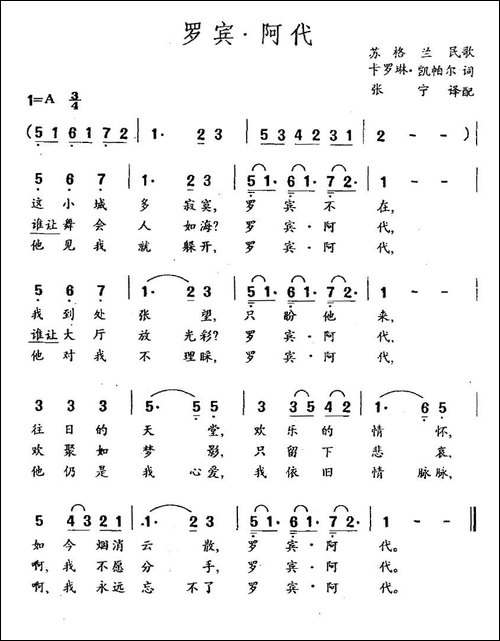 罗宾·阿代
苏格兰民歌
卡罗琳·凯帕尔 词
张宁 译配
1=A 3/4
( 5 1 6 1 7 2 | 1· 2 3 | 5 3 4 2 3 1 | 2 - - ) |
5 6 7 | 1· 2 3 | 5 1· 6 1· 7 2· | 1 - - |
这 小 城 多 寂寞, 罗 宾 不 在,
谁让 舞 会 人 如海? 罗 宾·阿 代,
他 见 我 就 躲开, 罗 宾·阿 代,
5 6 7 | 1· 2 3 | 5 1· 6 1· 7 2· | 1 - - |
我 到 处 张 望, 只 盼 他 来,
谁让 大 厅 放 光彩? 罗 宾·阿 代,
他 对 我 不 理睬, 罗 宾·阿 代,
3 3 3 | 5· 5 5 | 3 3 5 4 2 | 1· 6 5 |
往 日 的 天 堂, 欢 乐 的 情 怀,
欢 聚 如 梦 影, 只 留 下 悲 哀,
他 仍 是 我 心爱, 我 依 旧 情 脉脉,
5 4 3 2 1 | 1· 2 3 | 5 1· 6 1· 7 2· | 1 - - ‖
如 今 烟消 云 散, 罗 宾·阿 代。
啊, 我 不愿 分 手, 罗 宾·阿 代。
啊, 我 永远 忘 不了 罗 宾·阿 代。